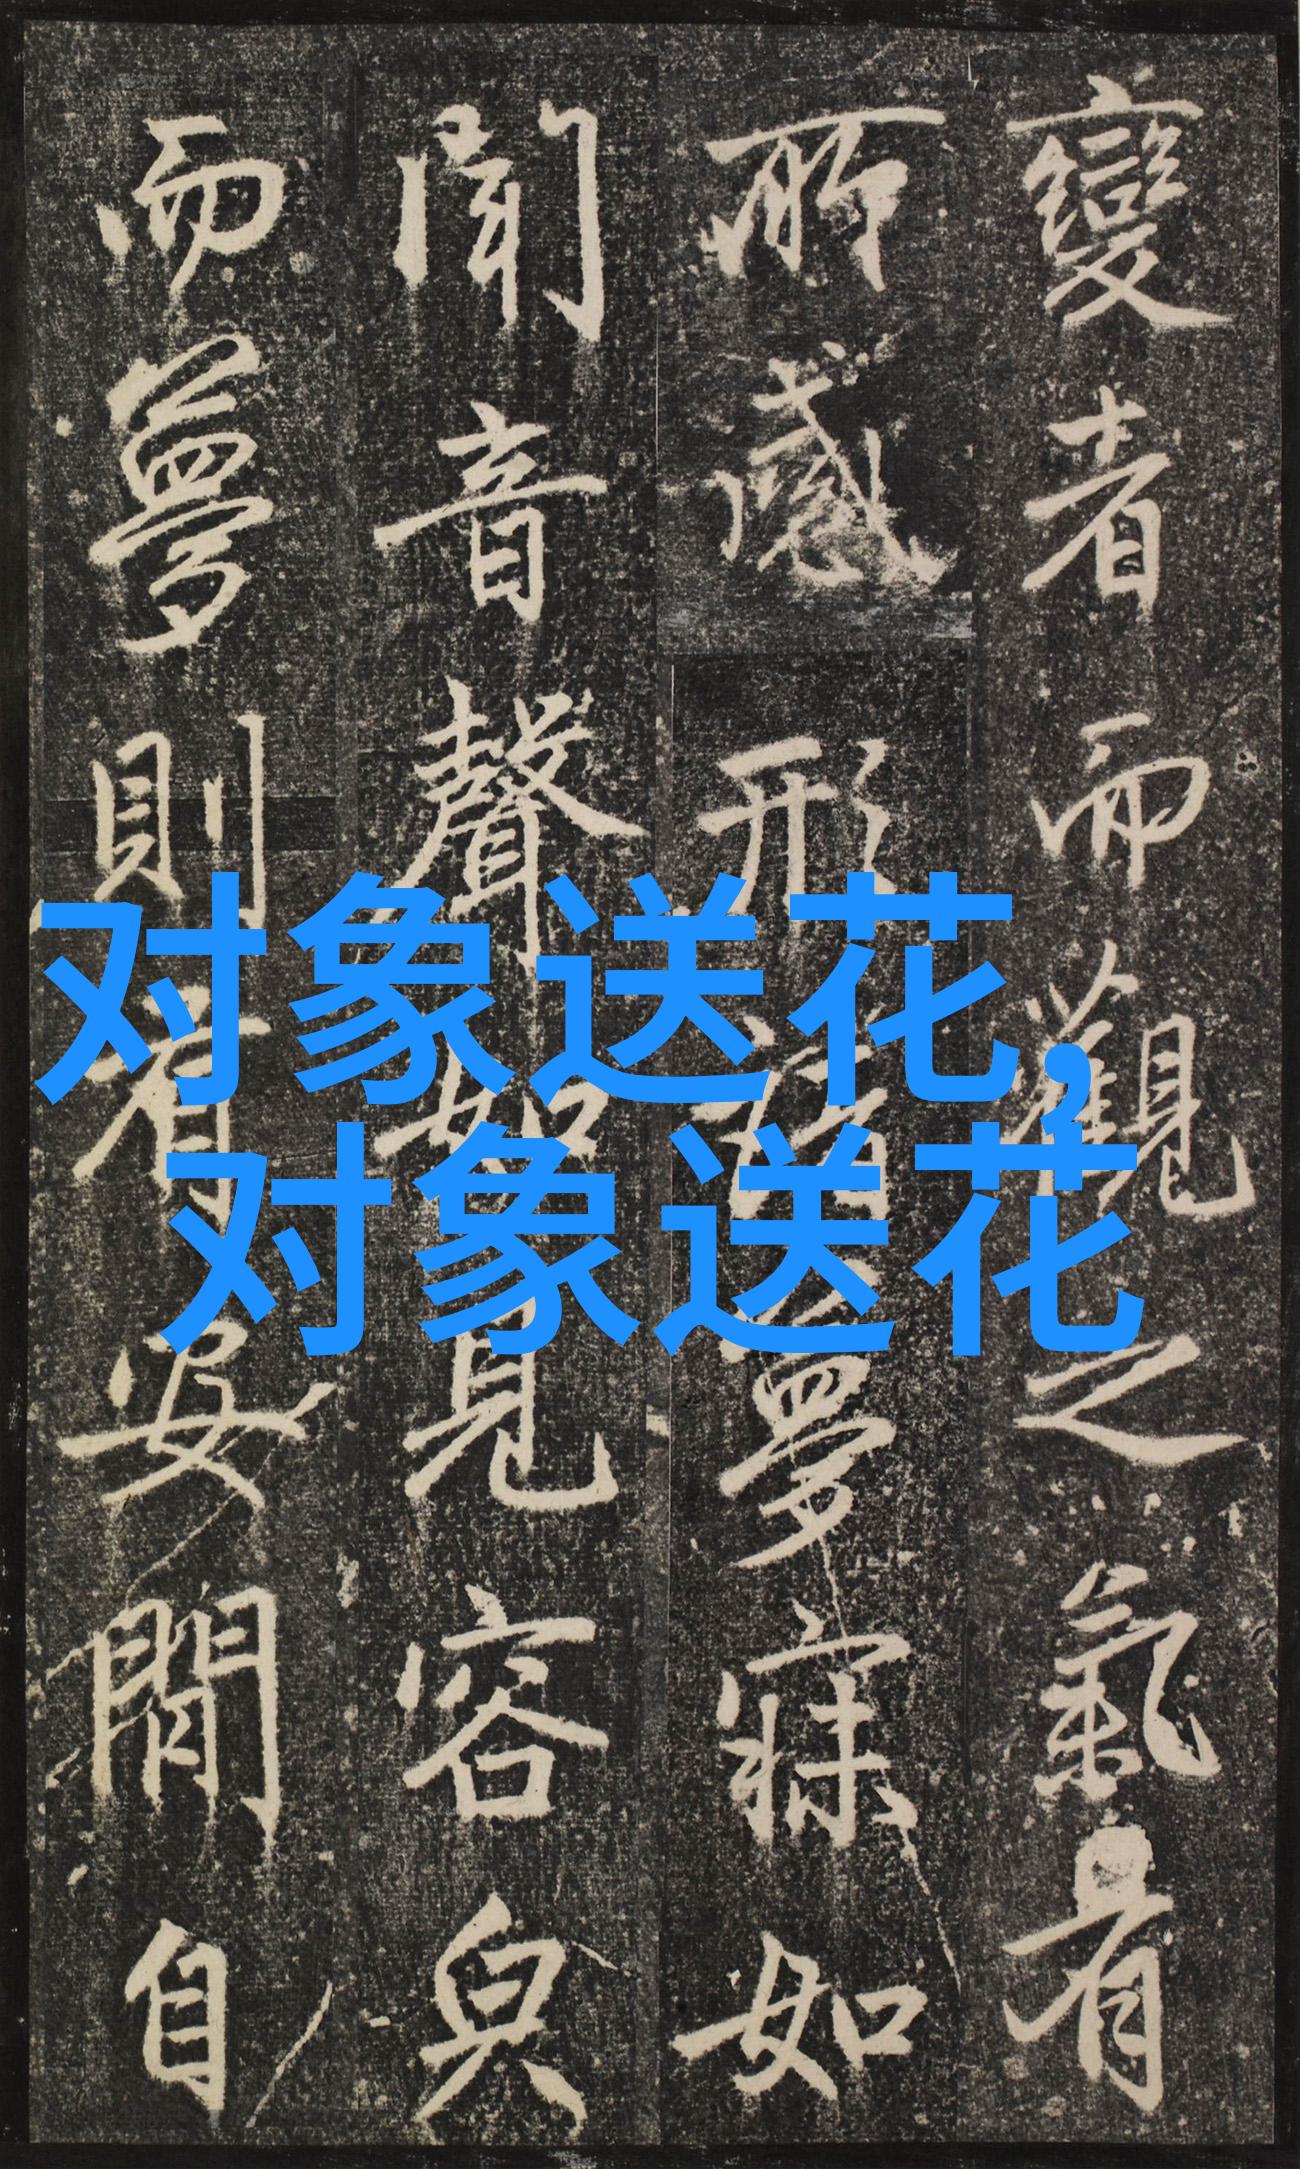 變者而觀之氣有
所感形諸夢寐如
聞音聲如見容皃
而夢則有安閒自
对象送花，
对象送花